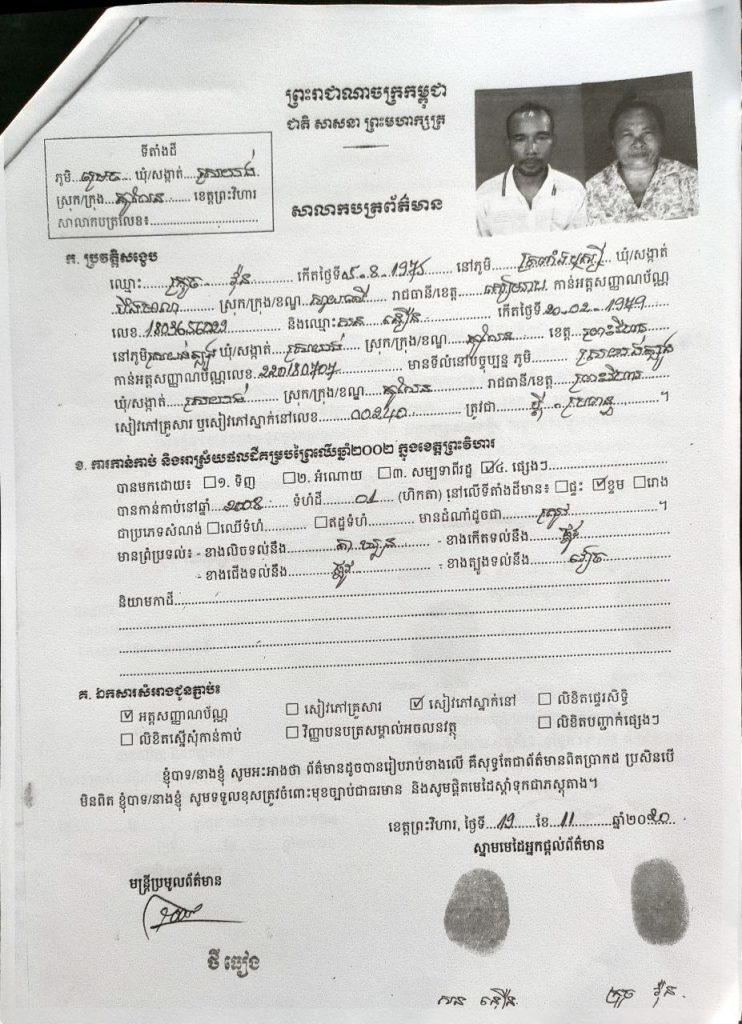 ព្រះរាជាណាចក្រកម្ពុជា
ជាតិ សាសនា ព្រះមហាក្សត្រ
ទីតាំងដី
ភូមិ........ ឃុំ/សង្កាត់ ស្រយង់
ស្រុក/ក្រុង គូលែន ខេត្តព្រះវិហារ
សាលាកបត្រលេខ៖........
សាលាកបត្រព័ត៌មាន
ក. ប្រវត្តិសង្ខេប
ឈ្មោះ ក្រូច វ៉ុន កើតថ្ងៃទី ៥-8-1975 នៅភូមិ ត្រពាំងឫស្សី ឃុំ/សង្កាត់
ស្រុក/ក្រុង/ខណ្ឌ រាជធានី/ខេត្ត សៀមរាប កាន់អត្តសញ្ញាណប័ណ្ណ
លេខ និងឈ្មោះ សាន គឿន កើតថ្ងៃទី 20-02-1949
នៅភូមិ ស្រយង់ត្បូង ឃុំ/សង្កាត់ ស្រយង់ ស្រុក/ក្រុង/ខណ្ឌ គូលែន ខេត្ត ព្រះវិហារ
កាន់អត្តសញ្ញាណប័ណ្ណលេខ 220180707 មានទីលំនៅបច្ចុប្បន្ន ភូមិ ស្រយង់ត្បូង
ឃុំ/សង្កាត់ ស្រយង់ ស្រុក/ក្រុង/ខណ្ឌ គូលែន រាជធានី/ខេត្ត ព្រះវិហារ
សៀវភៅគ្រួសារ ឬសៀវភៅស្នាក់នៅលេខ 00240 ត្រូវជា ប្តី-ប្រពន្ធ ។
ខ. ការកាន់កាប់ និងអាស្រ័យផលដីគម្របព្រៃឈើឆ្នាំ២០០២ ក្នុងខេត្តព្រះវិហារ
បានមកដោយ៖ ☐១. ទិញ ☐២. អំណោយ ☐៣. សម្បទាពីរដ្ឋ ☑៤. ផ្សេងៗ
បានកាន់កាប់នៅឆ្នាំ ទំហំដី 01 (ហិកតា) នៅលើទីតាំងដីមាន៖ ☐ផ្ទះ ☑ខ្ទម ☐រោង
ជាប្រភេទសំណង់ ☐ឈើទំហំ ☐ឥដ្ឋទំហំ មានដំណាំដូចជា ស្រូវ ។
មានព្រំប្រទល់៖ - ខាងលិចទល់នឹង - ខាងកើតទល់នឹង ផ្លូវ
- ខាងជើងទល់នឹង ផ្លូវ - ខាងត្បូងទល់នឹង
និយាមកាដី
គ. ឯកសារសំអាងជូនភ្ជាប់៖
☑ អត្តសញ្ញាណប័ណ្ណ ☐ សៀវភៅគ្រួសារ ☑ សៀវភៅស្នាក់នៅ ☐ លិខិតផ្ទេរសិទ្ធិ
☐ លិខិតស្នើសុំកាន់កាប់ ☐ វិញ្ញាបនបត្រសម្គាល់អចលនវត្ថុ ☐ លិខិតបញ្ជាក់ផ្សេងៗ
ខ្ញុំបាទ/នាងខ្ញុំ សូមអះអាងថា ព័ត៌មានដូចបានរៀបរាប់ខាងលើ គឺសុទ្ធតែជាព័ត៌មានពិតប្រាកដ ប្រសិនបើ
មិនពិត ខ្ញុំបាទ/នាងខ្ញុំ សូមទទួលខុសត្រូវចំពោះមុខច្បាប់ជាធរមាន និងសូមផ្តិតមេដៃស្តាំទុកជាភស្តុតាង។
ខេត្តព្រះវិហារ, ថ្ងៃទី 19 ខែ 11 ឆ្នាំ២០២០
ស្នាមមេដៃអ្នកផ្តល់ព័ត៌មាន
មន្ត្រីប្រមូលព័ត៌មាន
ថី ធៀង
សាន គឿន ក្រូច វ៉ុន